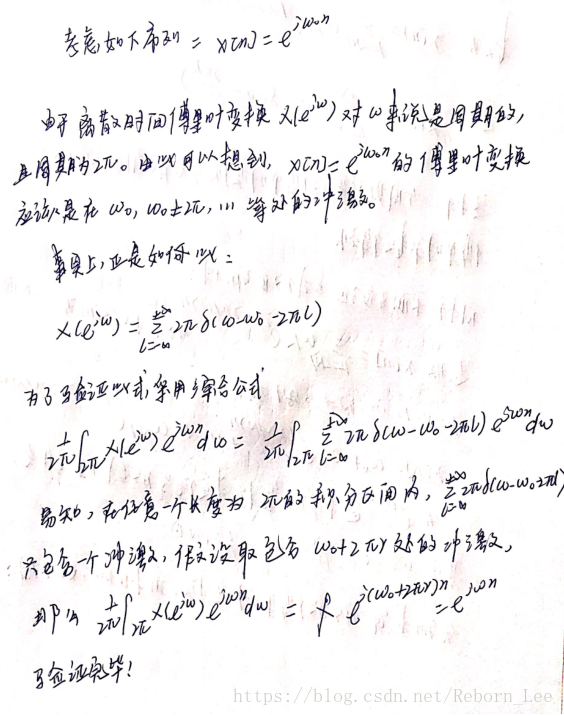 考虑如下序列 = x[n] = e^{jω₀n}
由于离散时间傅里叶变换 X(e^{jω}) 对 ω 来说是周期的,
且周期为2π。由此可以想到, x[n] = e^{jω₀n} 的傅里叶变换
应该是在 ω₀, ω₀±2π, ... 等处的冲激。
事实上,正是如何此:
X(e^{jω}) = \sum_{l=-∞}^{+∞} 2π δ(ω-ω₀-2πl)
为了验证此式,采用综合公式
\frac{1}{2π} ∫_{2π} X(e^{jω}) e^{jωn} dω = \frac{1}{2π} ∫_{2π} \sum_{l=-∞}^{+∞} 2π δ(ω-ω₀-2πl) e^{jωn} dω
易知,在任意一个长度为 2π的积分区间内, \sum_{l=-∞}^{+∞} 2πδ(ω-ω₀-2πl)
只包含一个冲激,假设取包含 ω₀+2πr 处的冲激,
那么 \frac{1}{2π} ∫_{2π} X(e^{jω}) e^{jωn} dω = e^{j(ω₀+2πr)n} = e^{jω₀n}
验证完毕!
https://blog.csdn.net/Reborn_Lee